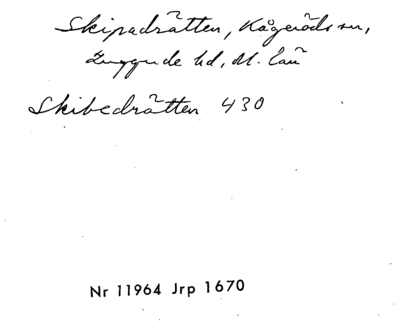 Skipadråtten, Kågeröds sn,
Luggude hd, M. län
Skibedråtten 430
Nr 11964 Jrp 1670